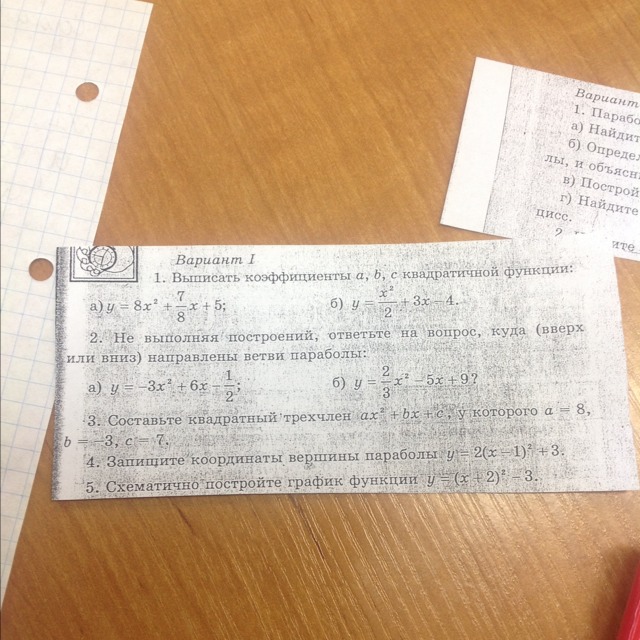 Вариант I
1. Выписать коэффициенты a, b, c квадратичной функции:
а) y = 8x² + 7/8 x + 5; б) y = x²/2 + 3x − 4.
2. Не выполняя построений, ответьте на вопрос, куда (вверх
или вниз) направлены ветви параболы:
а) y = −3x² + 6x − 1/2; б) y = 2/3 x² − 5x + 9?
3. Составьте квадратный трехчлен ax² + bx + c, у которого a = 8,
b = −3, c = 7.
4. Запишите координаты вершины параболы y = 2(x − 1)² + 3.
5. Схематично постройте график функции y = (x + 2)² − 3.
Вариант
1. Парабо
а) Найдит
б) Определ
лы, и объясн
в) Построй
г) Найдите
цисс.
2.
ите